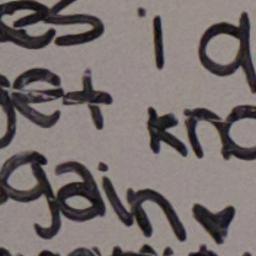 es i d
get kno
gain ♥